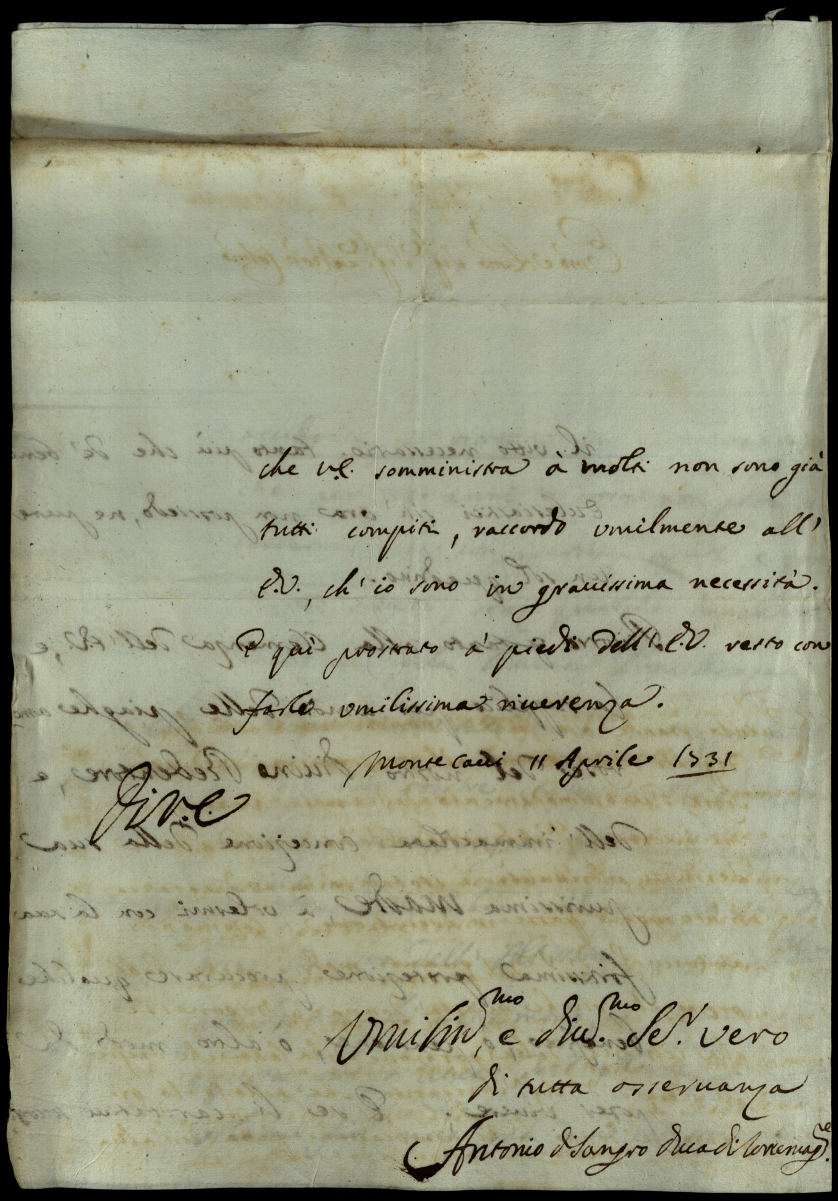 che V.E. somministra à molti non sono già
tutti compiti, raccordo umilmente all'
E.V., ch' io sono in grauissima necessità.
E quì prostrato a' piedi dell' E.V. resto con
farle umilissima riuerenza.
Monte Caui 11 Aprile 1731
Di V.E.
Umiliss.mo, e diu.mo Se.r vero
di tutta osseruanza
Antonio di Sangro duca di